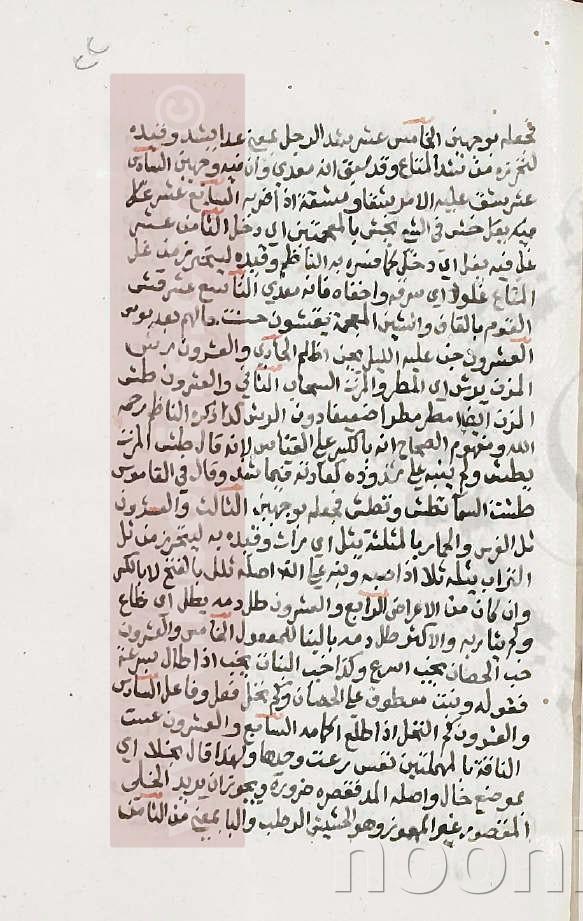 فجعله بوجهين الخامس عشر شد الرجل بمعنى عدا يشد وقيده
ليحترز من شد المتاع وقد سبق انه معدي وان فيه وجهين السادس
عشر شق عليه الامر يشق ومشقة اذا اضر به السابع عشر خش
في الشيء يخش بالمعجمتين اي دخل الثامن عشر
غل فيه يغل اي دخل كما فسره به الناظم وقيده ليحترز من غل
المتاع غلولا اي سرقه واخفاه فانه معدي التاسع عشر قش
القوم بالقاف والشين المعجمة يقشون حسنت حالهم بعد بوس
العشرون جن عليه الليل يجن اظلم الحادي والعشرون رش
المزن يرش اي المطر والمزن السحاب الثاني والعشرون طش
المزن ايضا امطر مطرا ضعيفا دون الرش كذا ذكره الناظم رحمه
الله ومفهوم الصحاح انه بالكسر على القياس لانه قال طش المزن
يطش ولم ينبه على شذوذه كعادته فيما شذ وقال في القاموس
طشت السما تطش وتطش فجعله بوجهين الثالث والعشرون
ثل الفرس والحمار بالمثلثة يثل اي راث وقيده به ليحترز من ثل
التراب يثله ثلا اذا صبه ونبه على انه اصله ثلل بالفتح لا بالكسر
وان كان من الاعراض الرابع والعشرون طل دمه يطل اي ضاع
ولم يثار به والاكثر طل دمه بالبنا للمفعول الخامس والعشرون
خب الحصان يخب اسرع وكذا خب النبات يخب اذا طال بسرعة
فقوله ونبت معطوف على الحصان وكم نخل فعل وفاعل السادس
والعشرون كم النخل اذا اطلع اكمامه السابع والعشرون عست
الناقة بالمهملتين تعس رعت وحدها ولهذا قال بخلا اي
بموضع خال واصله المد فقصره ضرورة ويجوز ان يريد الخلى
المقصور غير المهموز وهو الحشيش الرطب والبا بمعنى من الثامن